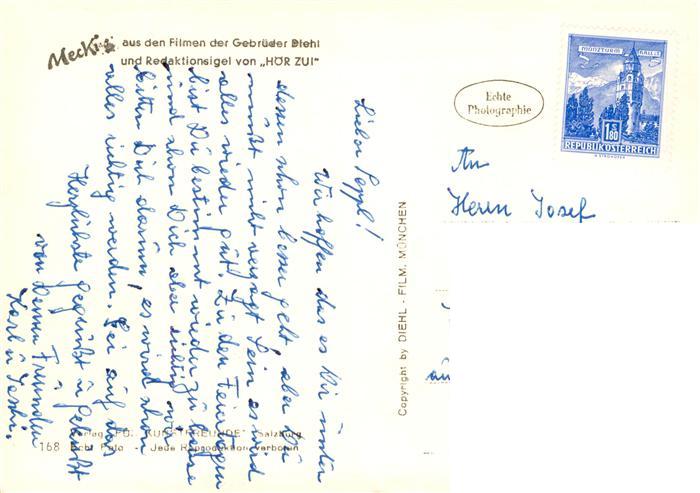 Mecki aus den Filmen der Gebrüder Diehl
und Redaktionsigel von „HÖR ZU!"
Lieber Peppl!
Wir hoffen das es Dir unter
dessen schon besser geht, aber Du
mußt nicht verzagt sein es wird
alles wieder gut. Zu den Feiertagen
bist Du bestimmt wieder zu Hause
und schon Dich aber richtig wir
bitten Dich darum, es wird schon
alles richtig werden. Sei auf das
Herzlichste gegrüßt u geküßt
von Deinen Freunden
Karl u
Echte
Photographie
MÜNZTURM HALL I. T.
5 5
1.80
REPUBLIK ÖSTERREICH
An
Herrn Josef
Copyright by DIEHL - FILM, MÜNCHEN
Verlag „FÜR KUNSTFREUNDE" Salzburg
168 Echt Foto - Jede Reproduktion verboten